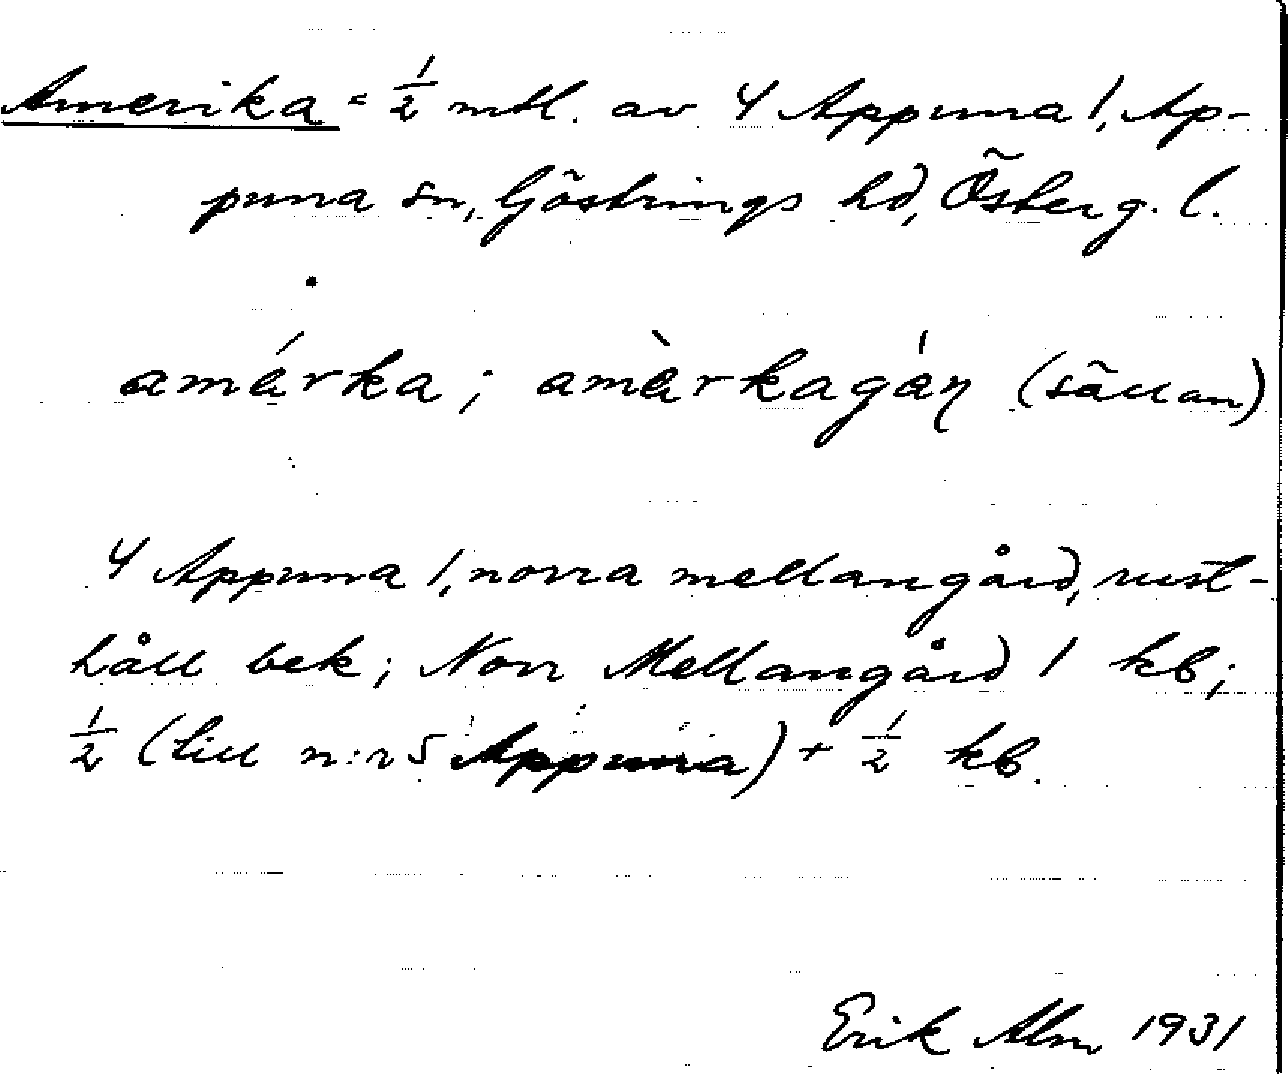 Amerika = ½ mtl. av 4 Appuna 1, Ap-
puna sn, Göstrings hd, Österg. l.
amérka; amèrkagáṇ (sällan)
4 Appuna 1, norra mellangård, rust-
håll bek; Norr Mellangård 1 kb;
½ (till n:r 5 Appuna) + ½ kb.
Erik Alm 1931